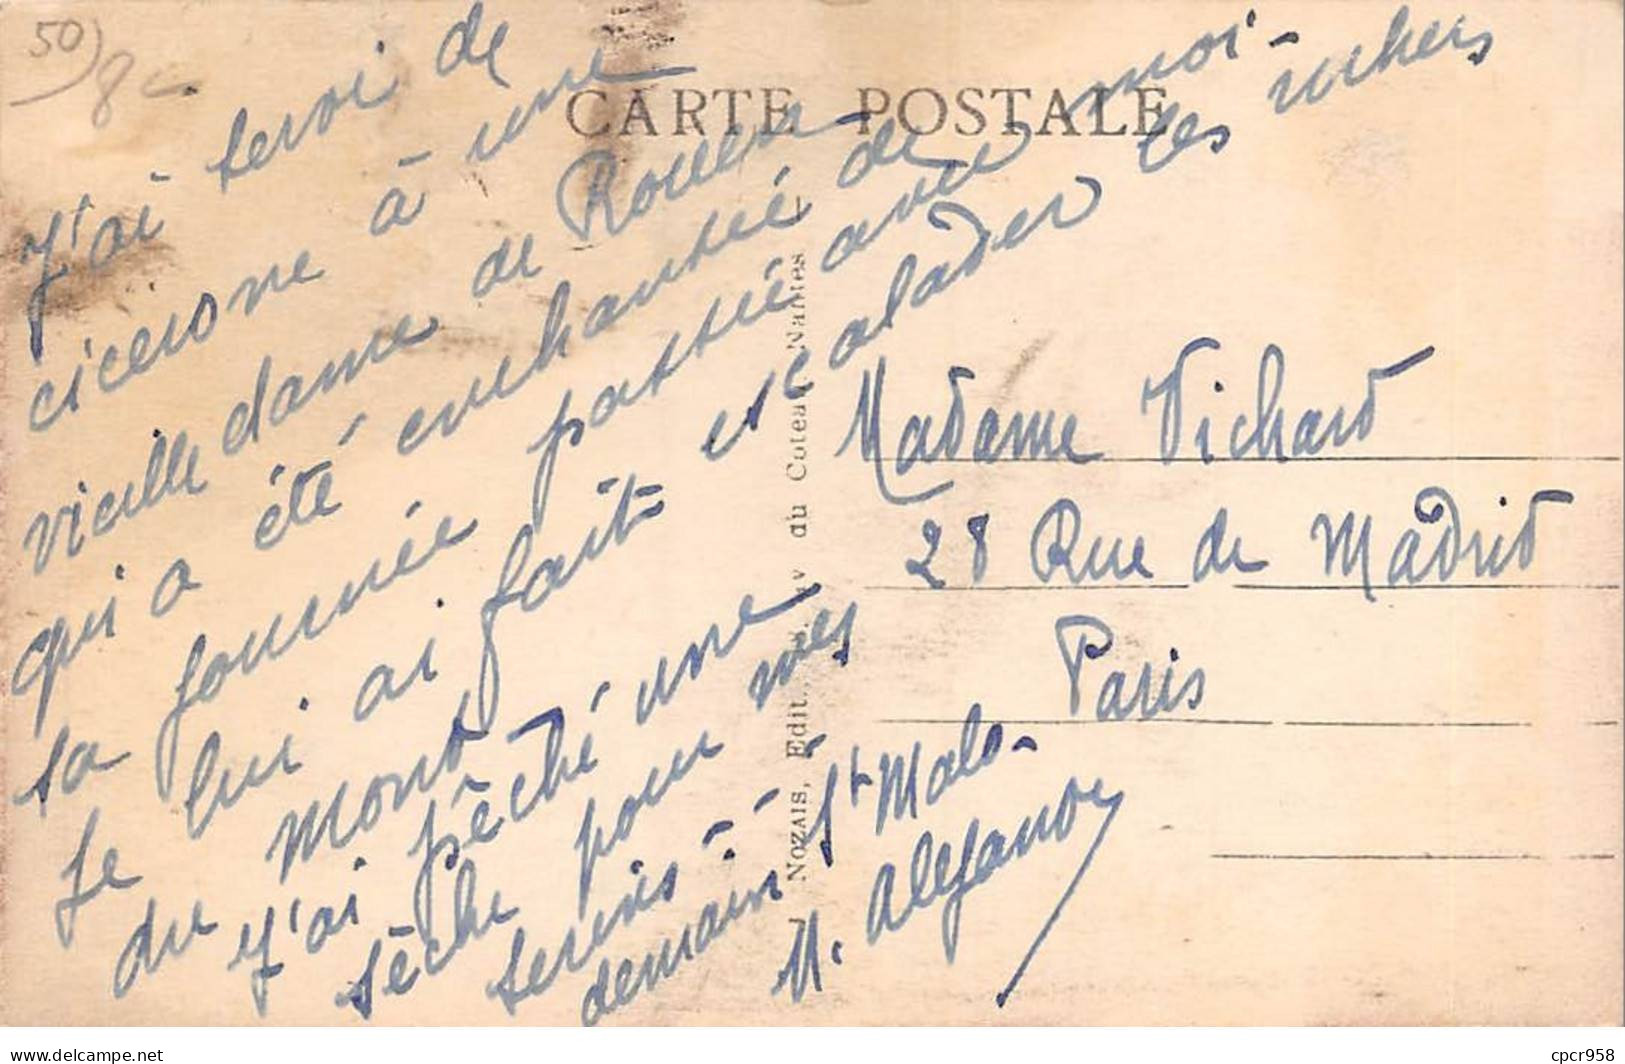 50)
8
CARTE POSTALE
J'ai servi de
cicerone à une
vieille dame de Rouen
qui a été enchantée de
sa journée passée avec moi -
Je lui ai fait escalader les rochers
du Mont
J'ai pêché une
sèche pour mes
serins -
demain St Malo -
M.
Madame Vichard
28 Rue de Madrid
Paris
NOZAIS, Edit., du Coteau, Nantes
delcampe.net
cpcr958